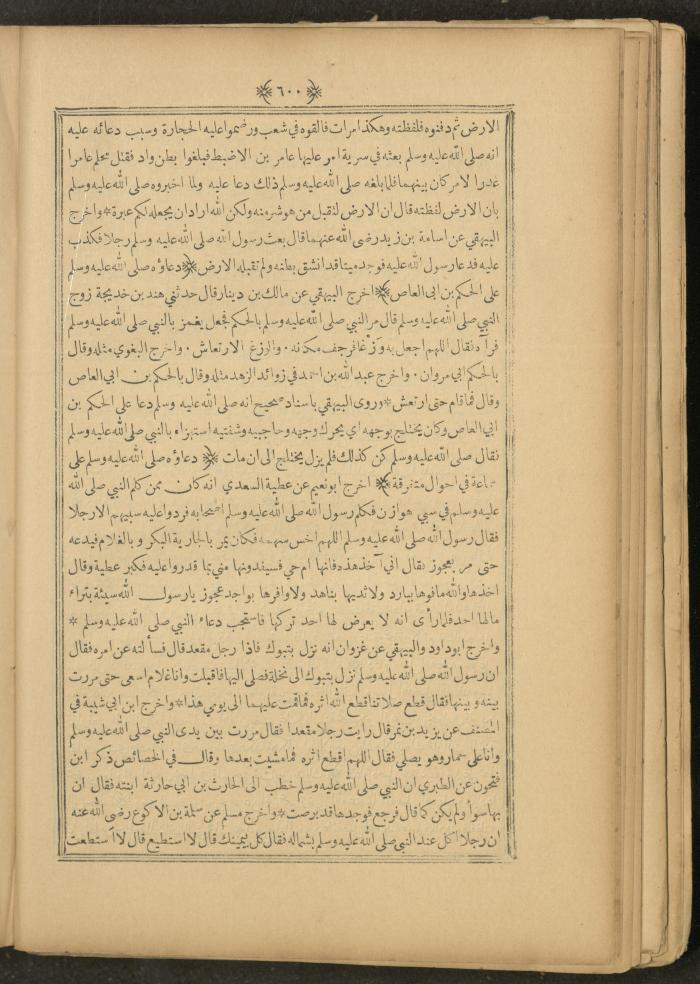 ﴿ ٦٠٠ ﴾
الارض ثم دفنوه فلفظته وهكذا مرات فالقوه في شعب ورضموا عليه الحجارة وسبب دعائه عليه
انه صلى الله عليه وسلم بعثه في سرية امر عليها عامر بن الاضبط فبلغوا بطن واد فقتل محلم عامرا
غدرا لامر كان بينهما فلما بلغه صلى الله عليه وسلم ذلك دعا عليه ولما اخبروه صلى الله عليه وسلم
بان الارض لفظته قال ان الارض لتقبل من هو شر منه ولكن الله اراد ان يجعله لكم عبرة * واخرج
البيهقي عن اسامة بن زيد رضى الله عنهما قال بعث رسول الله صلى الله عليه وسلم رجلا فكذب
عليه فدعا رسول الله عليه فوجد ميتا قد انشق بطنه ولم تقبله الارض ﴿ دعاؤه صلى الله عليه وسلم
على الحكم بن ابي العاص ﴾ اخرج البيهقي عن مالك بن دينار قال حدثني هند بن خديجة زوج
النبي صلى الله عليه وسلم قال مر النبي صلى الله عليه وسلم بالحكم فجعل يغمز بالنبي صلى الله عليه وسلم
فرآه فقال اللهم اجعل به وزغا فرجف مكانه . والوزغ الارتعاش . واخرج البغوي مثله وقال
بالحكم ابي مروان . واخرج عبد الله بن احمد في زوائد الزهد مثله وقال بالحكم بن ابي العاص
وقال فما قام حتى ارتعش * وروى البيهقي باسناد صحيح انه صلى الله عليه وسلم دعا على الحكم بن
ابي العاص وكان يختلج بوجهه اي يحرك وجهه وحاجبيه وشفتيه استهزاء بالنبي صلى الله عليه وسلم
فقال صلى الله عليه وسلم كن كذلك فلم يزل يختلج الى ان مات ﴿ دعاؤه صلى الله عليه وسلم على
جماعة في احوال متفرقة ﴾ اخرج ابو نعيم عن عطية السعدي انه كان ممن كلم النبي صلى الله
عليه وسلم في سبي هوازن فكلم رسول الله صلى الله عليه وسلم اصحابه فردوا عليه سبيهم الا رجلا
فقال رسول الله صلى الله عليه وسلم اللهم اخس سهمه فكان يمر بالجارية البكر و بالغلام فيدعه
حتى مر بعجوز فقال اني آخذ هذه فانها ام حي فسيفدونها مني بما قدروا عليه فكبر عطية وقال
اخذها والله ما فوها ببارد ولا ثديها بناهد ولا وافرها بواجد عجوز يا رسول الله سيئة بتراء
مالها احد فلما رأى انه لا يعرض لها احد تركها فاستجب دعاء النبي صلى الله عليه وسلم *
واخرج ابو داود والبيهقي عن غزوان انه نزل بتبوك فاذا رجل مقعد قال فسألته عن امره فقال
ان رسول الله صلى الله عليه وسلم نزل بتبوك الى نخلة فصلى اليها فاقبلت وانا غلام اسعى حتى مررت
بينه وبينها فقال قطع صلاتنا قطع الله اثره فما قمت عليهما الى يومي هذا * واخرج ابن ابي شيبة في
المصنف عن يزيد بن نمر قال رايت رجلا مقعدا فقال مررت بين يدى النبي صلى الله عليه وسلم
وانا على حمار وهو يصلي فقال اللهم اقطع اثره فما مشيت بعدها وقال في الخصائص ذكر ابن
فتحون عن الطبري ان النبي صلى الله عليه وسلم خطب الى الحارث بن ابي حارثة ابنته فقال ان
بها سوأ ولم يكن كما قال فرجع فوجدها قد برصت * واخرج مسلم عن سلمة بن الاكوع رضى الله عنه
ان رجلا اكل عند النبي صلى الله عليه وسلم بشماله فقال كل بيمينك قال لا استطيع قال لا استطعت